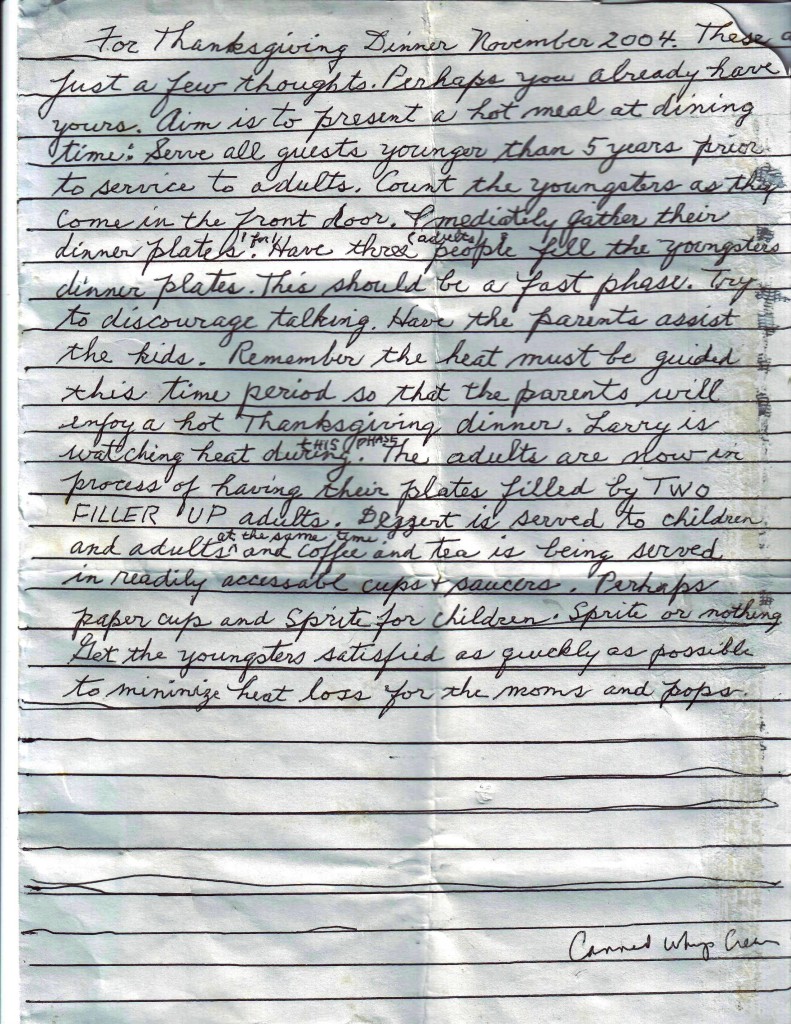 For Thanksgiving Dinner November 2004. These a
Just a few thoughts. Perhaps you already have
yours. Aim is to present a hot meal at dining
time: Serve all guests younger than 5 years prior
to service to adults. Count the youngsters as they
come in the front door. Imediately gather their
dinner plates. "for" Have three (adults) people fill the youngsters
dinner plates. This should be a fast phase. Try
to discourage talking. Have the parents assist
the kids. Remember the heat must be guided
this time period so that the parents will
enjoy a hot Thanksgiving dinner. Larry is
watching heat during THIS PHASE. The adults are now in
process of having their plates filled by TWO
FILLER UP adults. Dezzert is served to children
and adults at the same time ^ and coffee and tea is being served
in readily accessabl cups & saucers. Perhaps
paper cup and Sprite for children. Sprite or nothing
Get the youngsters satisfied as quickly as possible
to mininize heat loss for the moms and pops.
Canned Whip Cream